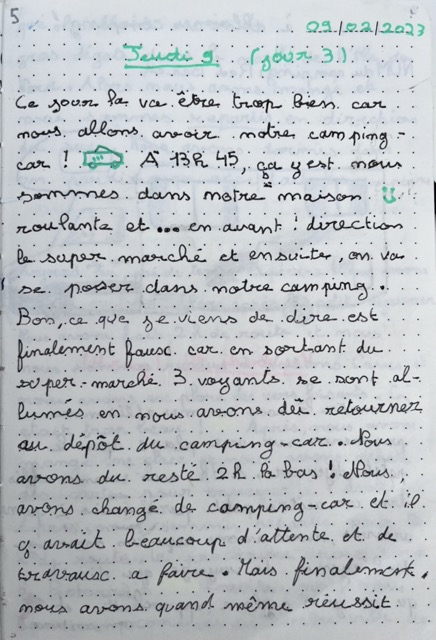 5
09/02/2023
Jeudi 9. (jour 3)
Ce jour la va être trop bien car
nous allons avoir notre camping-
car ! A 13h 45, ça y est nous
sommes dans notre maison
roulante et ... en avant ! direction
le super marché et ensuite, on va
se poser dans notre camping.
Bon, ce que je viens de dire est
finalement faux car en sortant du
super-marché 3 voyants se sont al-
lumés en nous avons dû retourner
au dépôt du camping-car. Nous
avons du resté 2h là bas ! Nous
avons changé de camping-car et il
y avait beaucoup d'attente et de
travaux a faire. Mais finalement,
nous avons quand même réussit